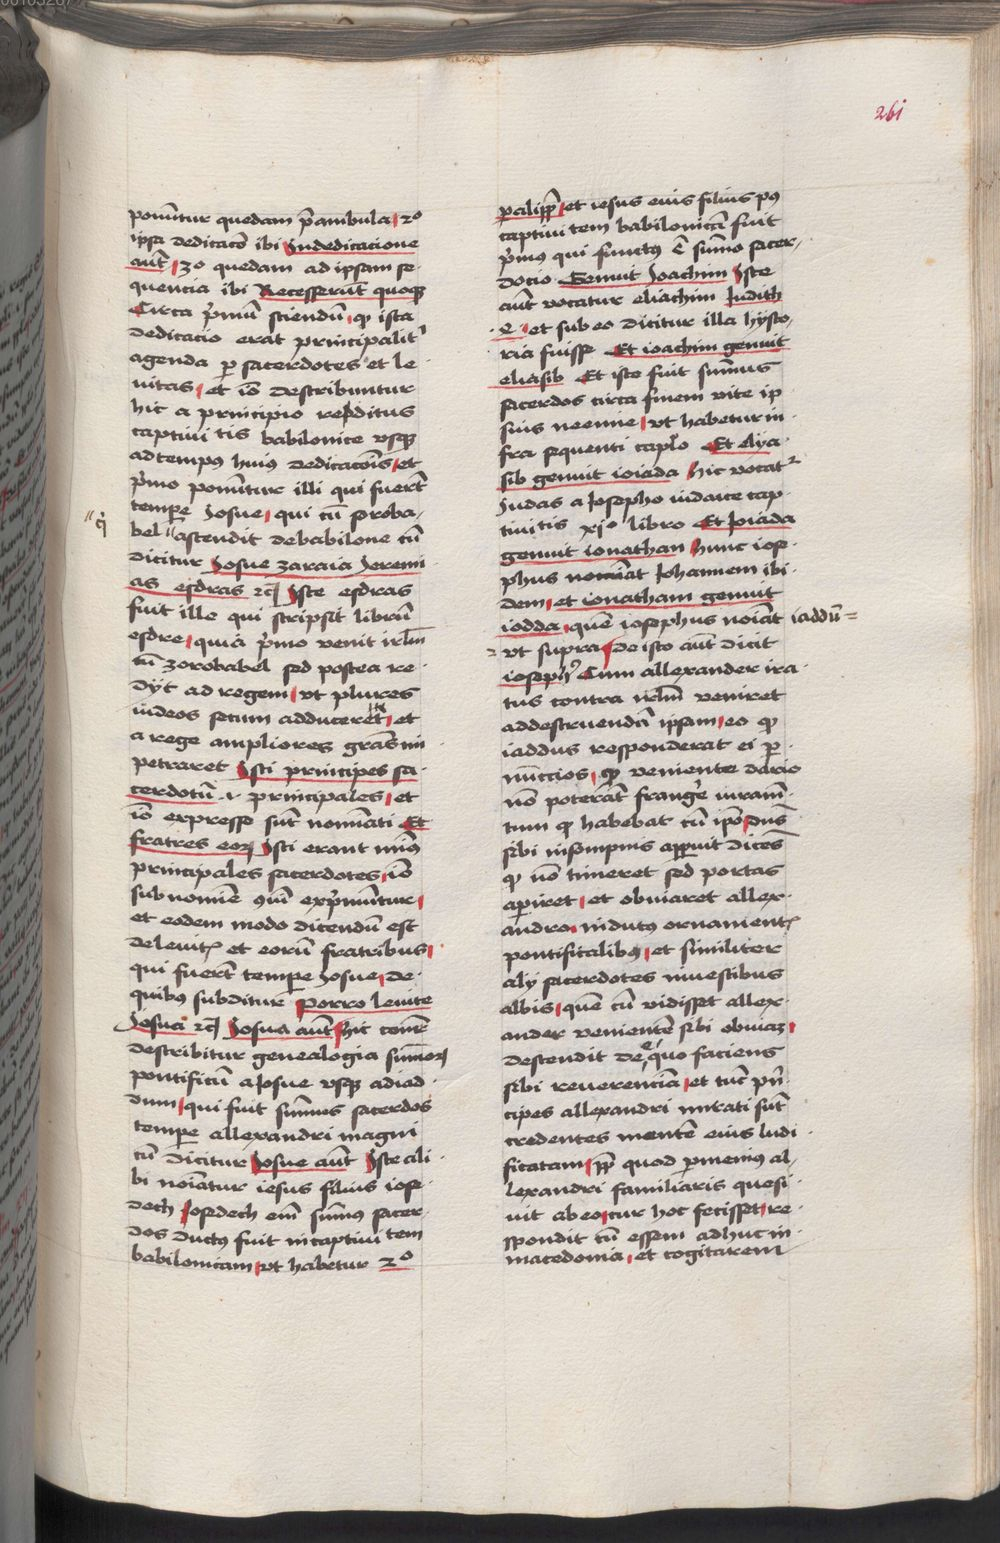 261
ponuntur quedam p̄ambula 2o
ipsa dedicacō ibi Indedicacione
aūt 3o quedam ad ipsam se
quencia ibi Recesserūt quoqꝫ
Circa p̄mū sciendū qꝫ ista
dedicacio erat principalit
agenda ꝑ sacerdotes et le
uitas et iō describuntur
hic a principio redditus
captiui tis babilonice vsqꝫ
ad tempꝰ huiꝰ dedicacōis et
p̄mo ponūtur illi qui fuerūt
tempe Josue qui cū soroba
bel ascendit de babilone cū
dicitur Josue zaraia Jeremi
as esdras ⁊cꝫ Iste esdras
fuit ille qui scripsit librū
esdre quia p̄mo venit irl̄m
cū zorobabel sed postea re
dÿt ad regem vt plures
iudeos secum adduceret et
a rege ampliores grās im
petraret Isti principes sa
cerdotū .i. principales et
iō expresse sūt nominati Et
fratres eoꝝ Isti erant minꝰ
principales sacerdotes iō
sub nomīe qm̄ exp̄muntur
et eodem modo dicendū est
de leuitꝭ et eorū fratribus
qui fuerūt tempe Josue de
quibꝰ subditur Porro leuite
Josua ⁊cꝫ Josua aūt hic conr̄
describitur genealogia sūmoꝝ
pontificū a Josue vsqꝫ ad iad
dum qui fuit sūmus sacerdos
tempe allexandri magni
cū dicitur Josue aūt Iste ali
bi noīatur iesus filius iose
dech Josedech em̄ sūmꝰ sacer
dos ductꝰ fuit in captiui tem
babilonicam vt habetur 2o
ꝑalipp̄ et iesus eius filius pꝰ
captiui tem babilonicā fuit
p̄mus qui functꝰ ē sūmo sacer
docio Genuit Joachim Iste
aūt vocatur eliachim Judith
et sub eo dicitur illa hysto
ria fuisse Et ioachim genuit
eliasib Et iste fuit sūmus
sacerdos circa finem vite ip
sius neemie vt habetur in
fra sequenti caplo Et elya
sib genuit ioiada hic vocat
Judas a Josepho iudaice cap
tiui tis xjo libro Et Joiada
genuit ionathan hunc iose
phus nominat Johannem ibi
dem et ionathan genuit
iodda quē iosephus noīat iaddū
vt supra De isto aūt dicit
ioseph Cum allexander ira
tus contra irl̄m veniret
ad destruendā ipsam eo qꝫ
iaddus responderat ei ꝑ
nūccios qꝫ veniente dario
nō poterāt frangē iuram
tum qꝫ habebat cū ipo dn̄s
sibi in sompnis apparuit dicēs
qꝫ nō timeret sed portas
aperiret et obuiaret allex
andro indutꝰ ornamentꝭ
pontificalibꝰ et similiter
alÿ sacerdotes in vestibus
albis quē cū vidisset allex
ander venientē sibi obuiaꝫ
descendit de equo faciens
sibi reuerenciā et tūc prī
cipes allexandri mirati sūt
credentes mentē eius ludi
ficatam pp̄ quod ꝑmeniꝰ al
lexandri familiaris quesi
uit ab eo cur hoc fecisset re
spondit cū essem adhuc in
macedonia et cogitarem